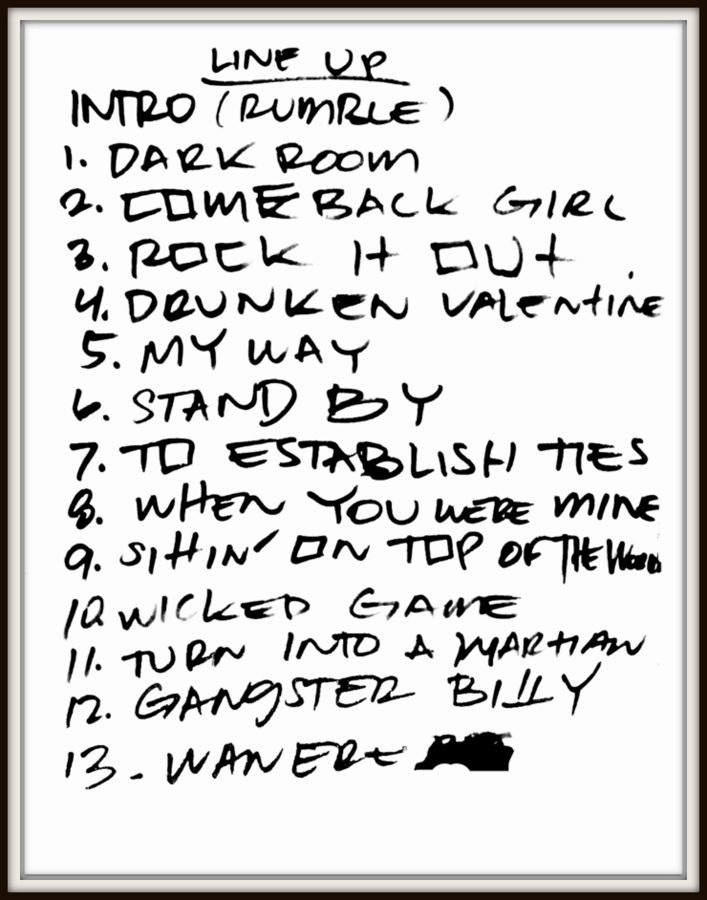 LINE UP
INTRO (RUMBLE)
1. DARK ROOM
2. COMEBACK GIRL
3. ROCK It OUt
4. DRUNKEN VALENtINE
5. MY WAY
6. STAND BY
7. TO ESTABLISH TIES
8. WHEN YOU WERE MINE
9. SIttIN' ON TOP OF THE WORLD
10. WICKED GAME
11. TURN INTO A MARtIAN
12. GANGSTER BILLY
13. WANERE